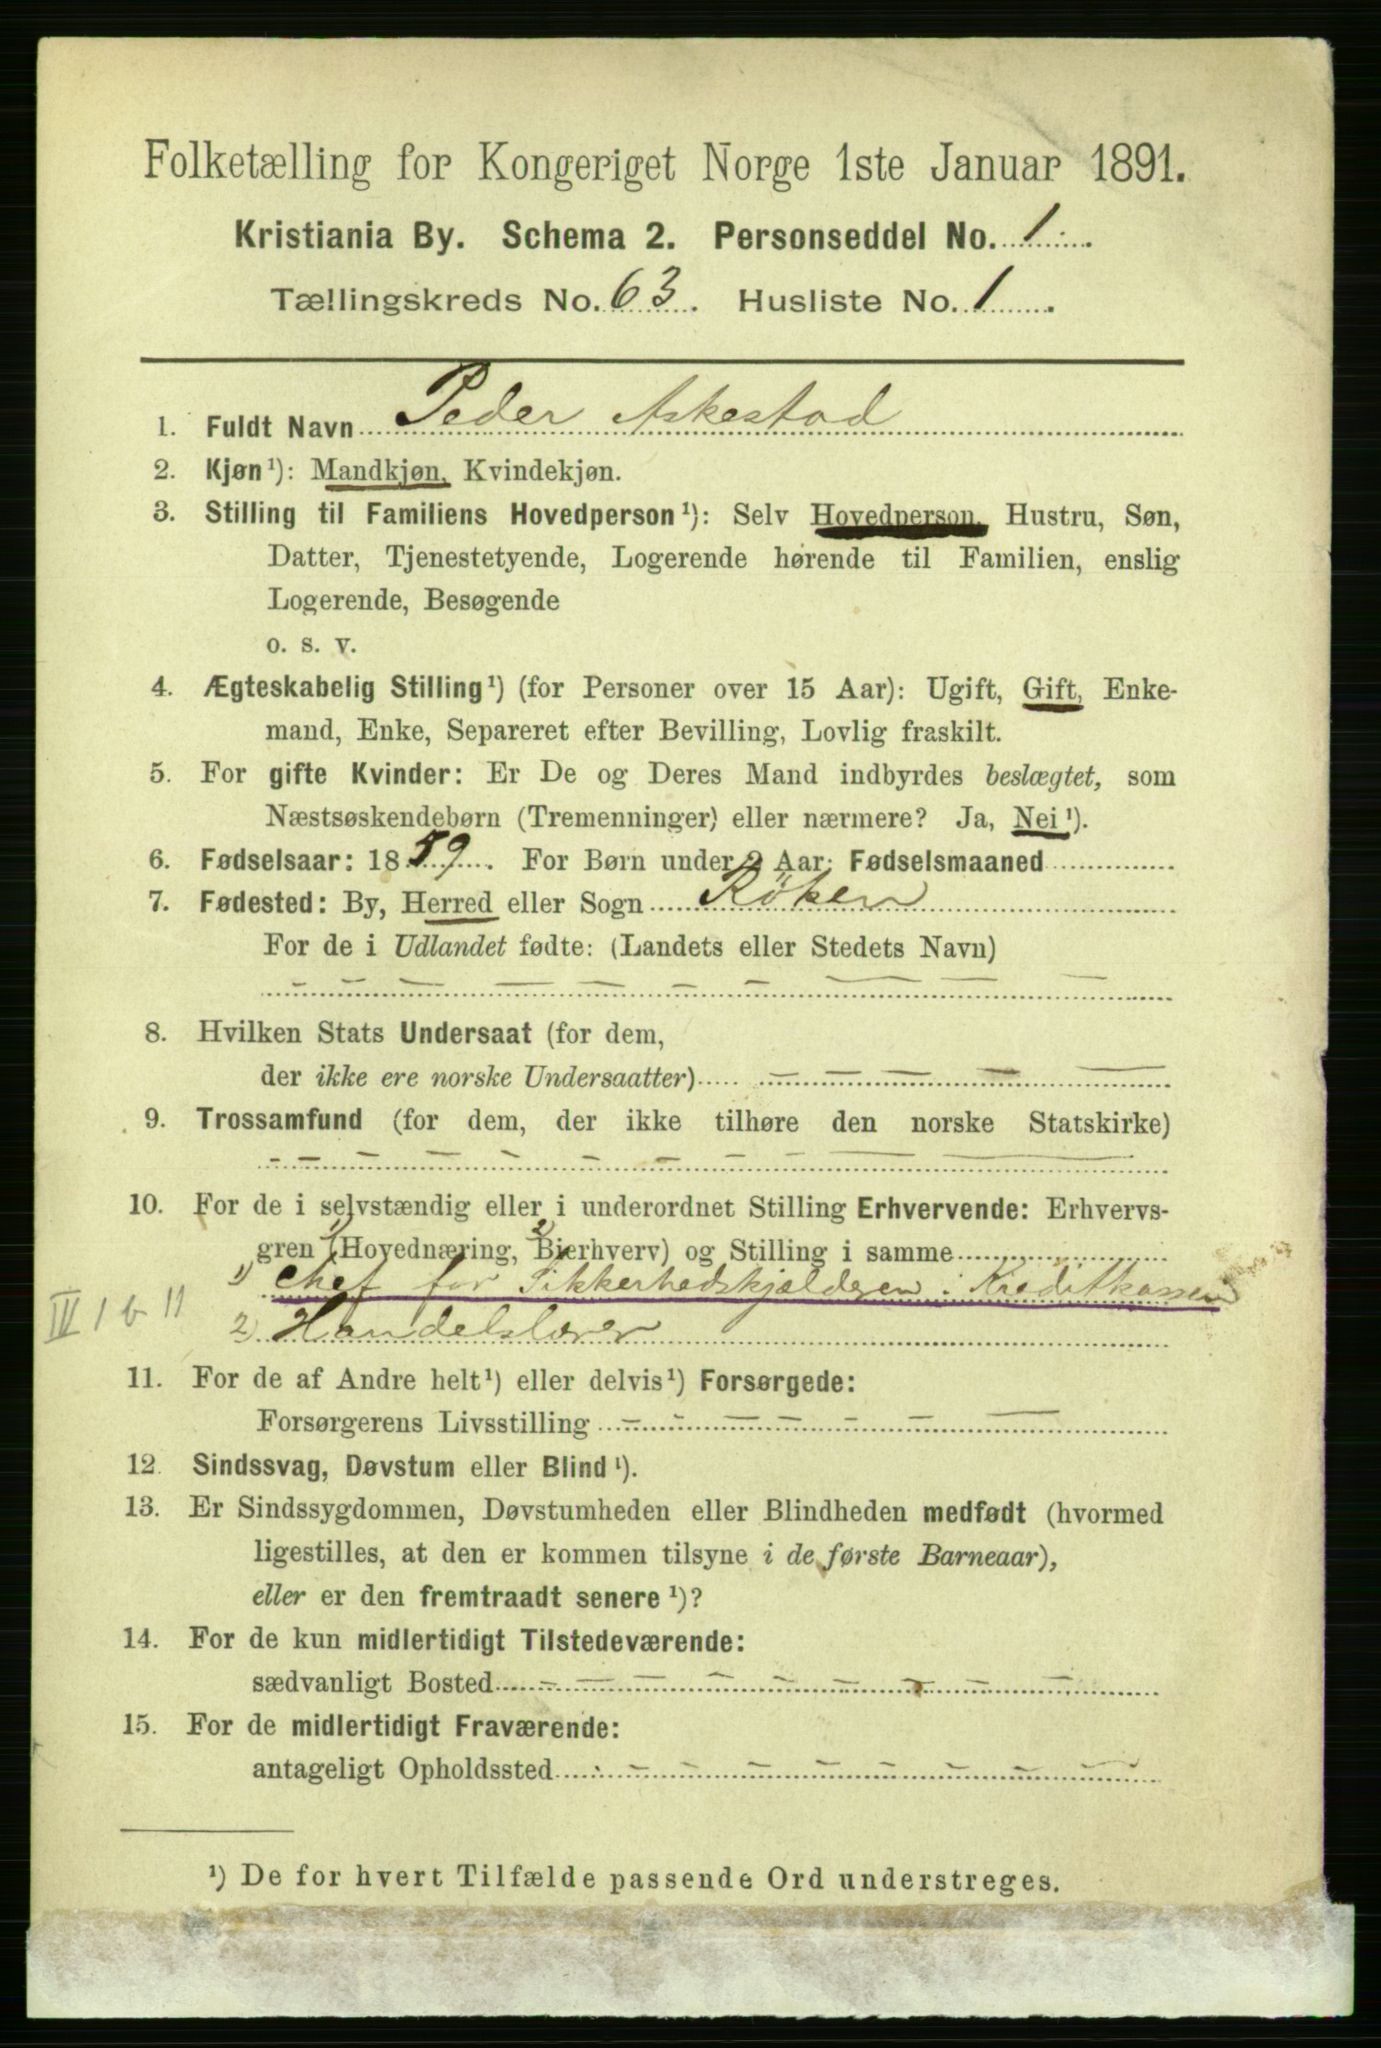 Folketælling for Kongeriget Norge 1ste Januar 1891.
Kristiania By. Schema 2. Personseddel No. 1.
Tællingskreds No. 63. Husliste No. 1.
1. Fuldt Navn Peder Askestad
2. Kjøn¹): Mandkjøn, Kvindekjøn.
3. Stilling til Familiens Hovedperson¹): Selv Hovedperson, Hustru, Søn,
Datter, Tjenestetyende, Logerende hørende til Familien, enslig
Logerende, Besøgende
o. s. v.
4. Ægteskabelig Stilling¹) (for Personer over 15 Aar): Ugift, Gift, Enke-
mand, Enke, Separeret efter Bevilling, Lovlig fraskilt.
5. For gifte Kvinder: Er De og Deres Mand indbyrdes beslægtet, som
Næstsøskendebørn (Tremenninger) eller nærmere? Ja, Nei¹).
6. Fødselsaar: 1859. For Børn under 2 Aar: Fødselsmaaned
7. Fødested: By, Herred eller Sogn Røken
For de i Udlandet fødte: (Landets eller Stedets Navn)
8. Hvilken Stats Undersaat (for dem,
der ikke ere norske Undersaatter)
9. Trossamfund (for dem, der ikke tilhøre den norske Statskirke)
10. For de i selvstændig eller i underordnet Stilling Erhvervende: Erhvervs-
gren 1) (Hovednæring, 2) Bierhverv) og Stilling i samme
1) Chef for Sikkerhedskjælderen i Kreditkassen
IV 1 b 11
2) Handelslærer
11. For de af Andre helt¹) eller delvis¹) Forsørgede:
Forsørgerens Livsstilling
12. Sindssvag, Døvstum eller Blind¹).
13. Er Sindssygdommen, Døvstumheden eller Blindheden medfødt (hvormed
ligestilles, at den er kommen tilsyne i de første Barneaar),
eller er den fremtraadt senere¹)?
14. For de kun midlertidigt Tilstedeværende:
sædvanligt Bosted
15. For de midlertidigt Fraværende:
antageligt Opholdssted
¹) De for hvert Tilfælde passende Ord understreges.